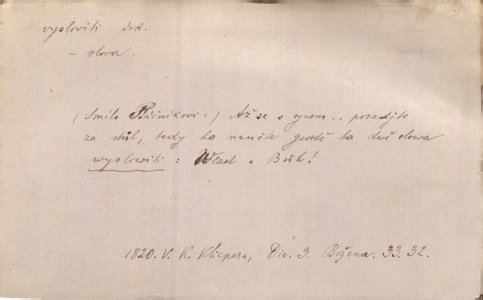 vysloviti dok.
– slova.
(Smilo Ptáčníkovi:) Až se s synem .. posadíte
za stůl, tedy ho naučte ta dvě slowa
wyslowiti: Wlast a Bůh!
1820. V. K. Klicpera, Div. 3. Božena. 33. 32.